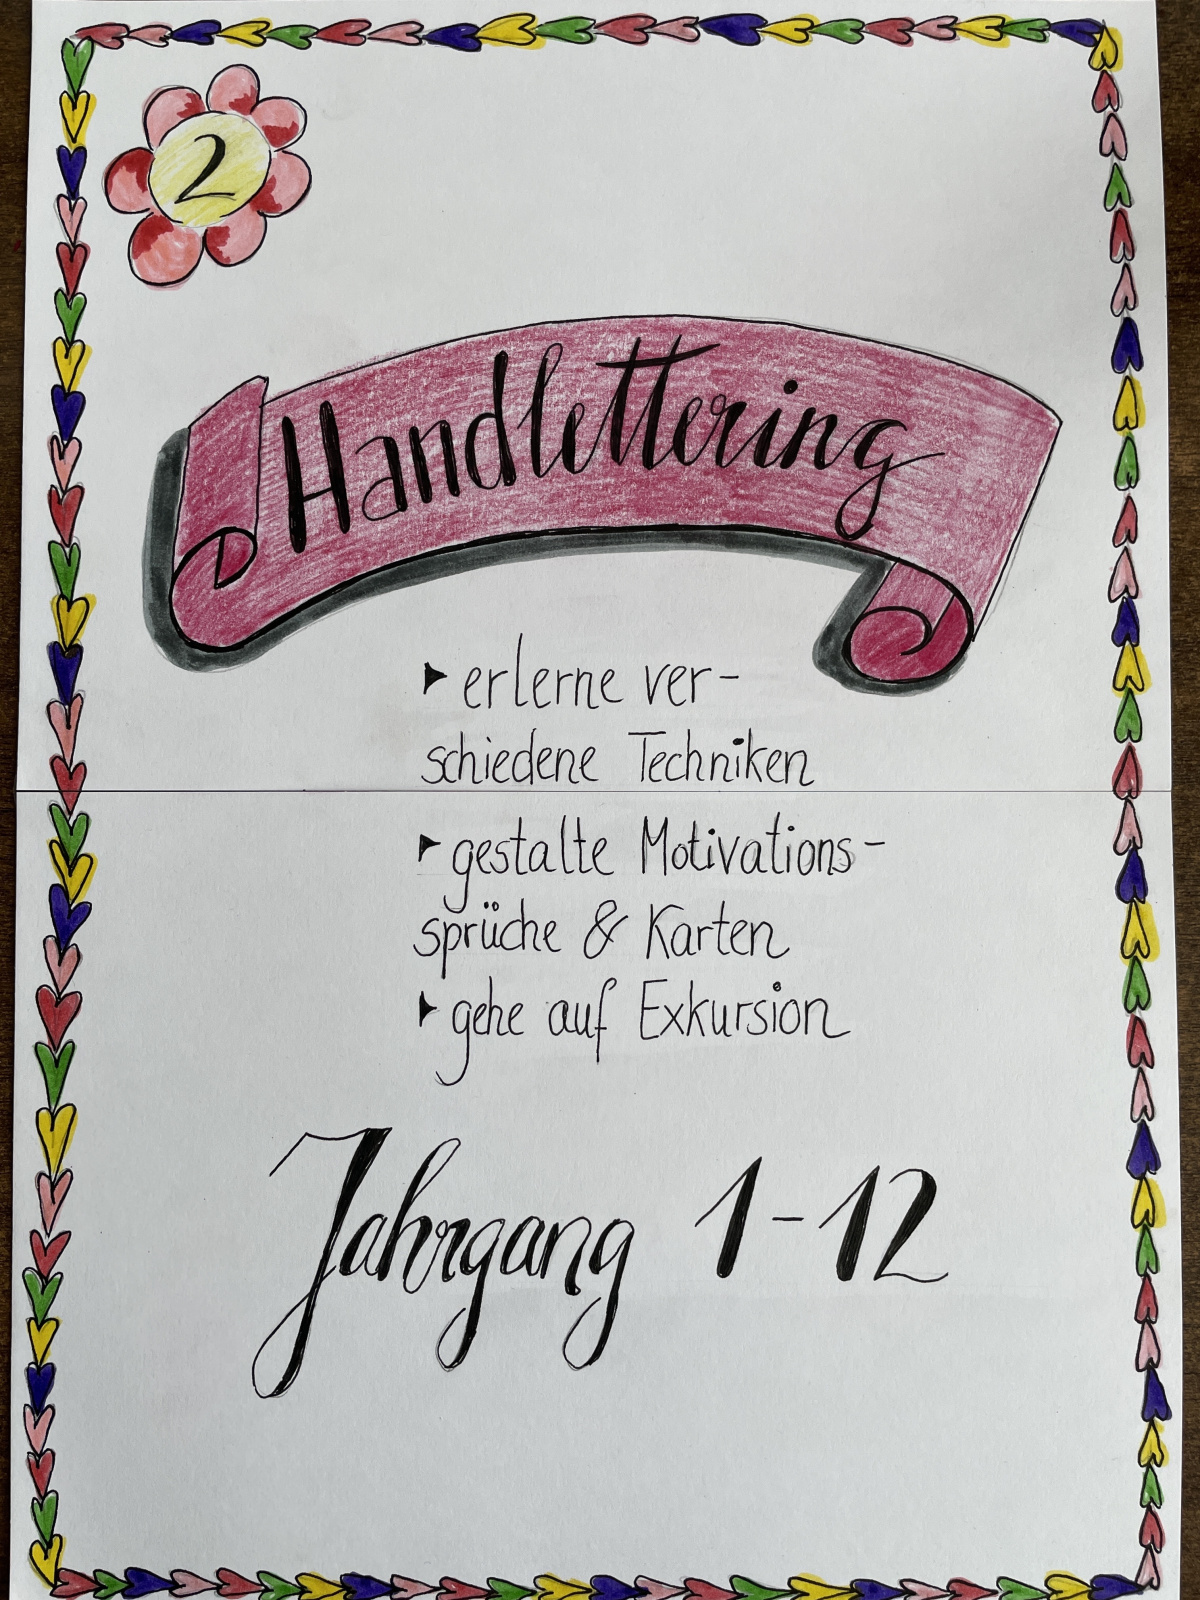 2
Handlettering
▸ erlerne ver-
schiedene Techniken
▸ gestalte Motivations-
sprüche & Karten
▸ gehe auf Exkursion
Jahrgang 1-12